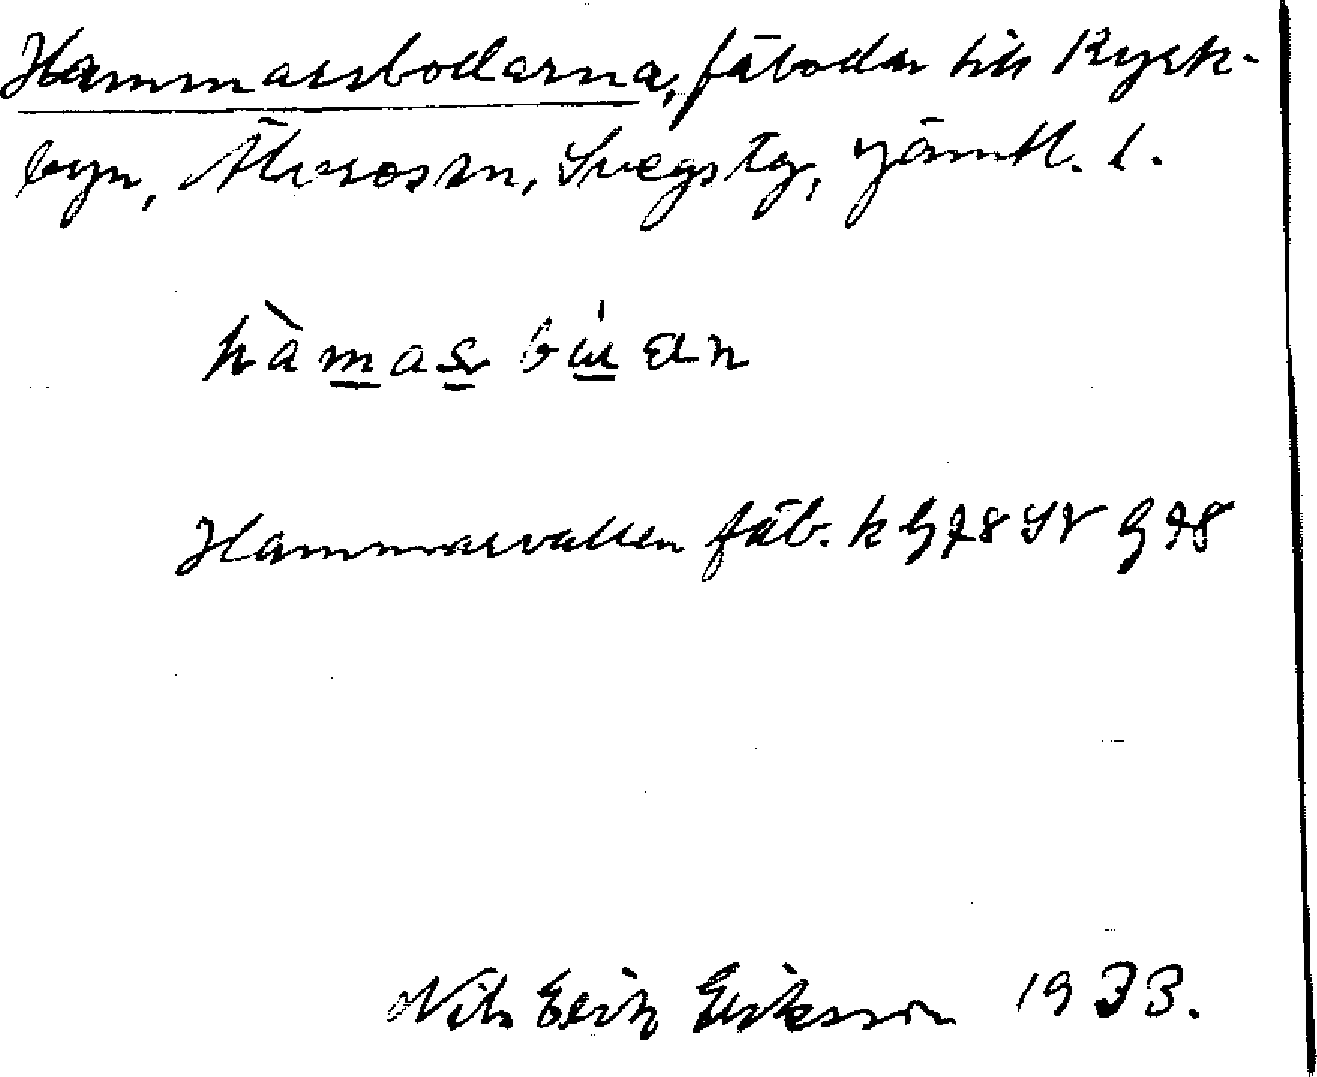 Hammarsbodarna, fäbodar till Kyrk-
byn, Älvros sn, Svegs tg, Jämtl. l.
hàmas búan
Hammarvallen fäb. k G 98 SV G 98
Nils Erik Eriksson 1933.